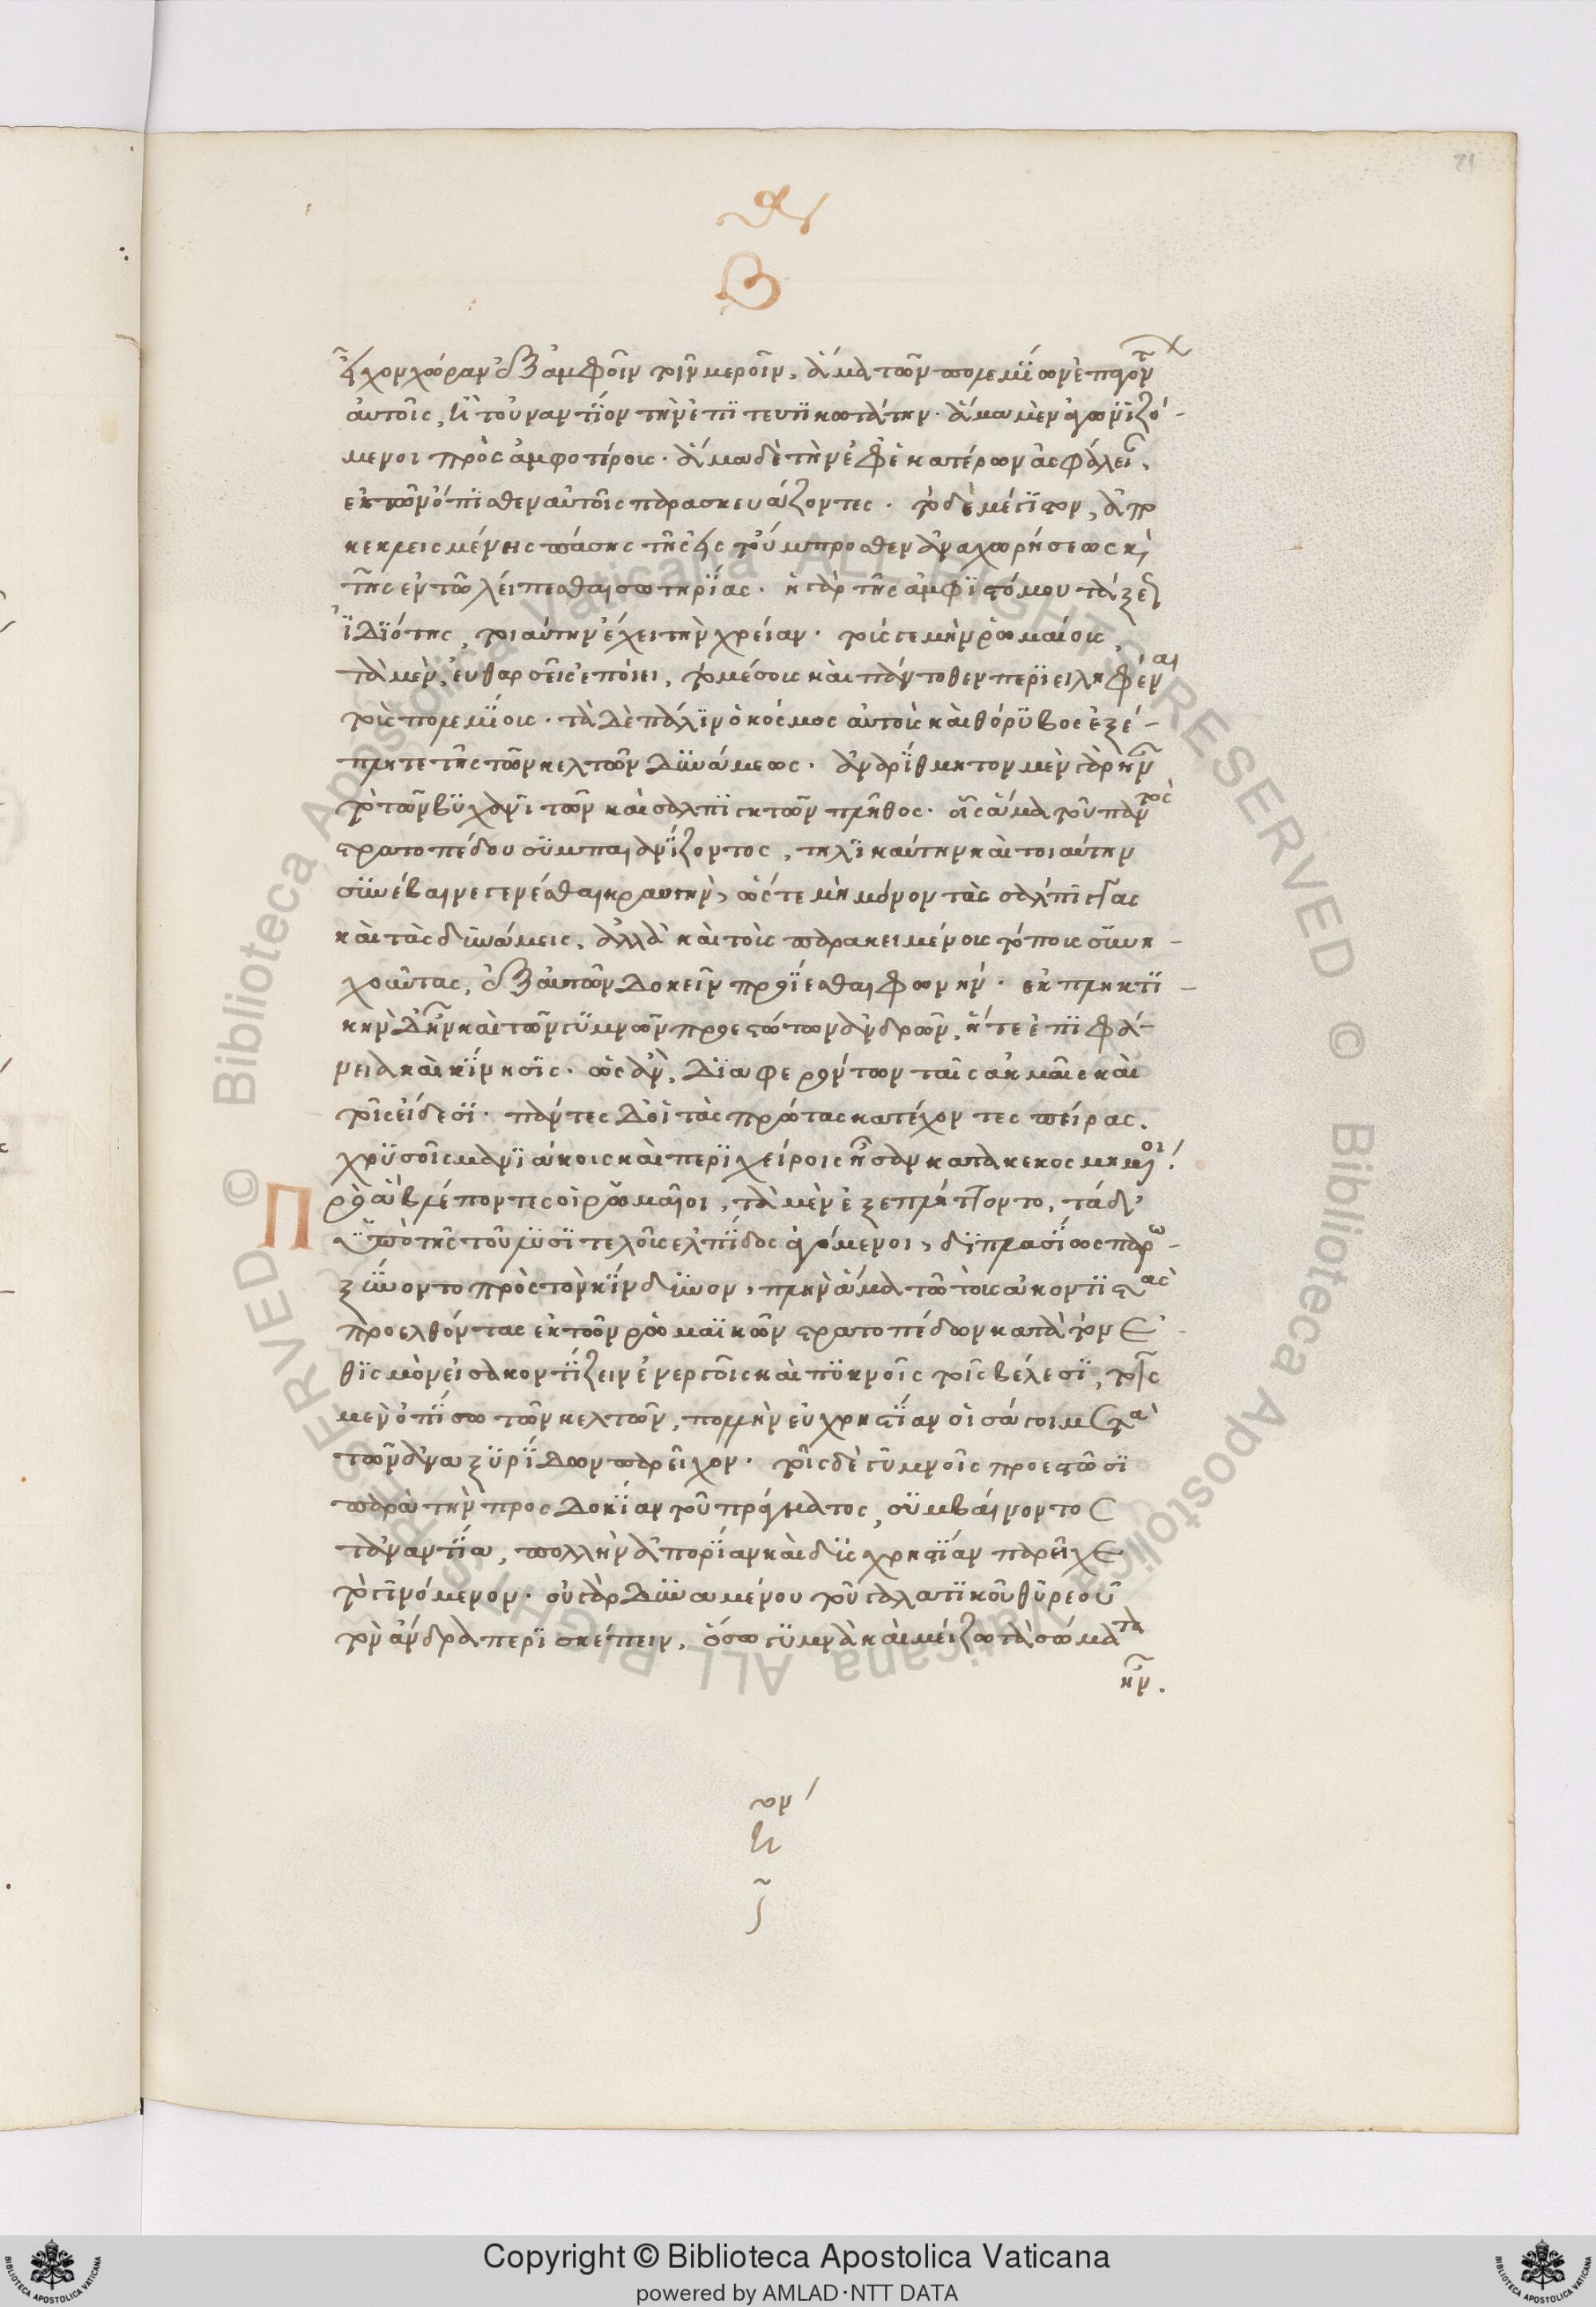 β
εἶχον χώραν ἐξ ἀμφοῖν τοῖν μεροῖν, ἅμα τῶν πολεμίων ἐπαγόντων
αὐτοῖς, ἢ τοὐναντίον τὴν ἐπιτευτικωτάτην· ἅμα μὲν ἀγωνιζό-
μενοι πρὸς ἀμφοτέροις· ἅμα δὲ τὴν ἐφ' ἑκατέρων ἀσφάλειαν,
ἐκ τῶν ὄπισθεν αὐτοῖς παρασκευάζοντες· τὸ δὲ μέγιστον, ἀπο
κεκλεισμένης πάσης τῆς εἰς τοὔμπροσθεν ἀναχωρήσεως καὶ
τῆς ἐν τῶ λείπεσθαι σωτηρίας· ἡ γὰρ τῆς ἀμφιστόμου τάξεως
ἰδιότης, τοιαύτην ἔχει τὴν χρείαν· τούς γε μὴν ῥωμαίοις,
τὰ μὲν, εὐθαρσεῖς ἐποίει, τὸ μέσοις καὶ πάντοθεν περιειλῆφθαι
τοὺς πολεμίοις· τὰ δὲ πάλιν ὁ κόσμος αὐτοὺς καὶ θόρυβος ἐξέ-
πληττε τῆς τῶν κελτῶν δυνάμεως· ἀναρίθμητον μὲν γὰρ ἦν
τὸ τῶν βυκανιτῶν καὶ σαλπιγκτῶν πλῆθος· οἷς ἅμα τοῦ παντὸς
στρατοπέδου συμπαιανίζοντος, τηλικαύτην καὶ τοιαύτην
συνέβαινε γενέσθαι κραυγὴν, ὥστε μὴ μόνον τὰς σάλπιγγας
καὶ τὰς δυνάμεις, ἀλλὰ καὶ τοὺς παρακειμένοις τόποις συνη-
χοῦντας, ἐξ αὐτῶν δοκεῖν προΐεσθαι φωνήν· ἐκπληκτι-
κὴ δ' ἦν καὶ τῶν γυμνῶν προεστώτων ἀνδρῶν, ἥ τε ἐπιφά-
νεια καὶ κίνησις· ὡς ἂν, διαφερόντων ταῖς ἀκμαῖς καὶ
τοῖς εἴδεσι· πάντες δ' οἱ τὰς πρώτας κατέχοντες σπείρας,
χρυσοῖς μανιάκοις καὶ περιχείροις ἦσαν κατακεκοσμημένοι·
Πρὸς ἃ βλέποντες οἱ ῥωμαῖοι, τὰ μὲν ἐξεπλήττοντο, τὰ δ'
ὑπὸ τῆς τοῦ λυσιτελοῦς ἐλπίδος ἀγόμενοι, διπλασίως παρω-
ξύνοντο πρὸς τὸν κίνδυνον, πλὴν ἅμα τῶ τοὺς ἀκοντιστὰς
προελθόντας ἐκ τῶν ῥωμαϊκῶν στρατοπέδων κατὰ τὸν ἐ-
θισμὸν εἰσακοντίζειν ἐνεργοῖς καὶ πυκνοῖς τοῖς βέλεσι, τοῖς
μὲν ὀπίσω τῶν κελτῶν, πολλὴν εὐχρηστίαν οἱ σάγοι μετὰ
τῶν ἀναξυρίδων παρεῖχον· τοῖς δὲ γυμνοῖς προεστῶσι
παρὰ τὴν προσδοκίαν τοῦ πράγματος, συμβαίνοντος
τἀναντία, πολλὴν ἀπορίαν καὶ δυσχρηστίαν παρεῖχε
τὸ γινόμενον· οὐ γὰρ δυναμένου τοῦ γαλατικοῦ θυρεοῦ
τὸν ἄνδρα περισκέπειν, ὅσω γυμνὰ καὶ μείζω τὰ σώματα
ἦν.